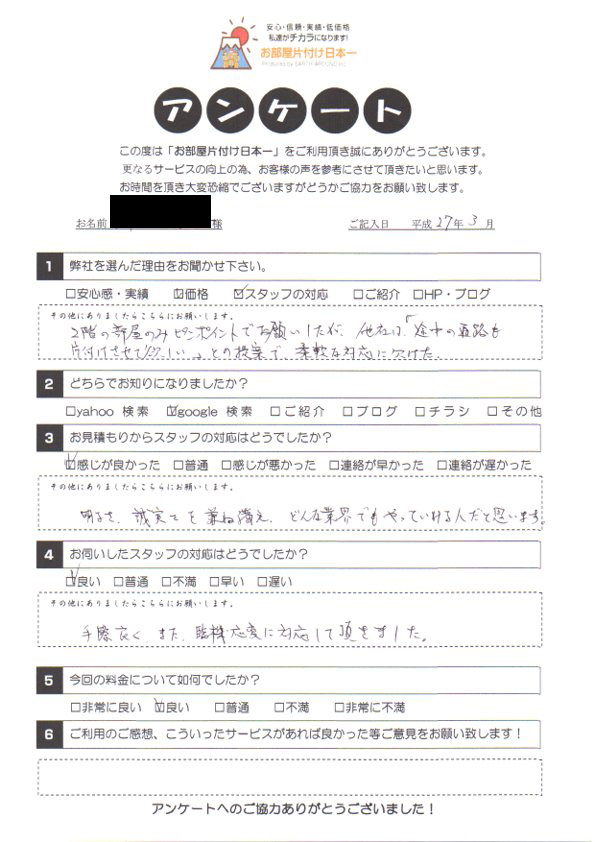 安心・信頼・実績・低価格
私達がチカラになります!
お部屋片付け日本一
Produced by EARTH AROUND inc.
アンケート
この度は「お部屋片付け日本一」をご利用頂き誠にありがとうございます。
更なるサービスの向上の為、お客様の声を参考にさせて頂きたいと思います。
お時間を頂き大変恐縮でございますがどうかご協力をお願い致します。
お名前 様 ご記入日 平成 27年 3月
1 弊社を選んだ理由をお聞かせ下さい。
□安心感・実績 ☑価格 ☑スタッフの対応 □ご紹介 □HP・ブログ
その他にありましたらこちらにお願いします。
2階の部屋のみピンポイントでお願いしたが、他社は、「途中の通路も
片付けさせて欲しい。」との提案で、柔軟な対応に欠けた。
2 どちらでお知りになりましたか?
□yahoo 検索 ☑google 検索 □ご紹介 □ブログ □チラシ □その他
3 お見積もりからスタッフの対応はどうでしたか?
☑感じが良かった □普通 □感じが悪かった □連絡が早かった □連絡が遅かった
その他にありましたらこちらにお願いします。
明るさ、誠実さを兼ね備え、どんな業界でもやっていける人だと思います。
4 お伺いしたスタッフの対応はどうでしたか?
☑良い □普通 □不満 □早い □遅い
その他にありましたらこちらにお願いします。
手際良く、また、臨機応変に対応して頂きました。
5 今回の料金について如何でしたか?
□非常に良い ☑良い □普通 □不満 □非常に不満
6 ご利用のご感想、こういったサービスがあれば良かった等ご意見をお願い致します!
アンケートへのご協力ありがとうございました!